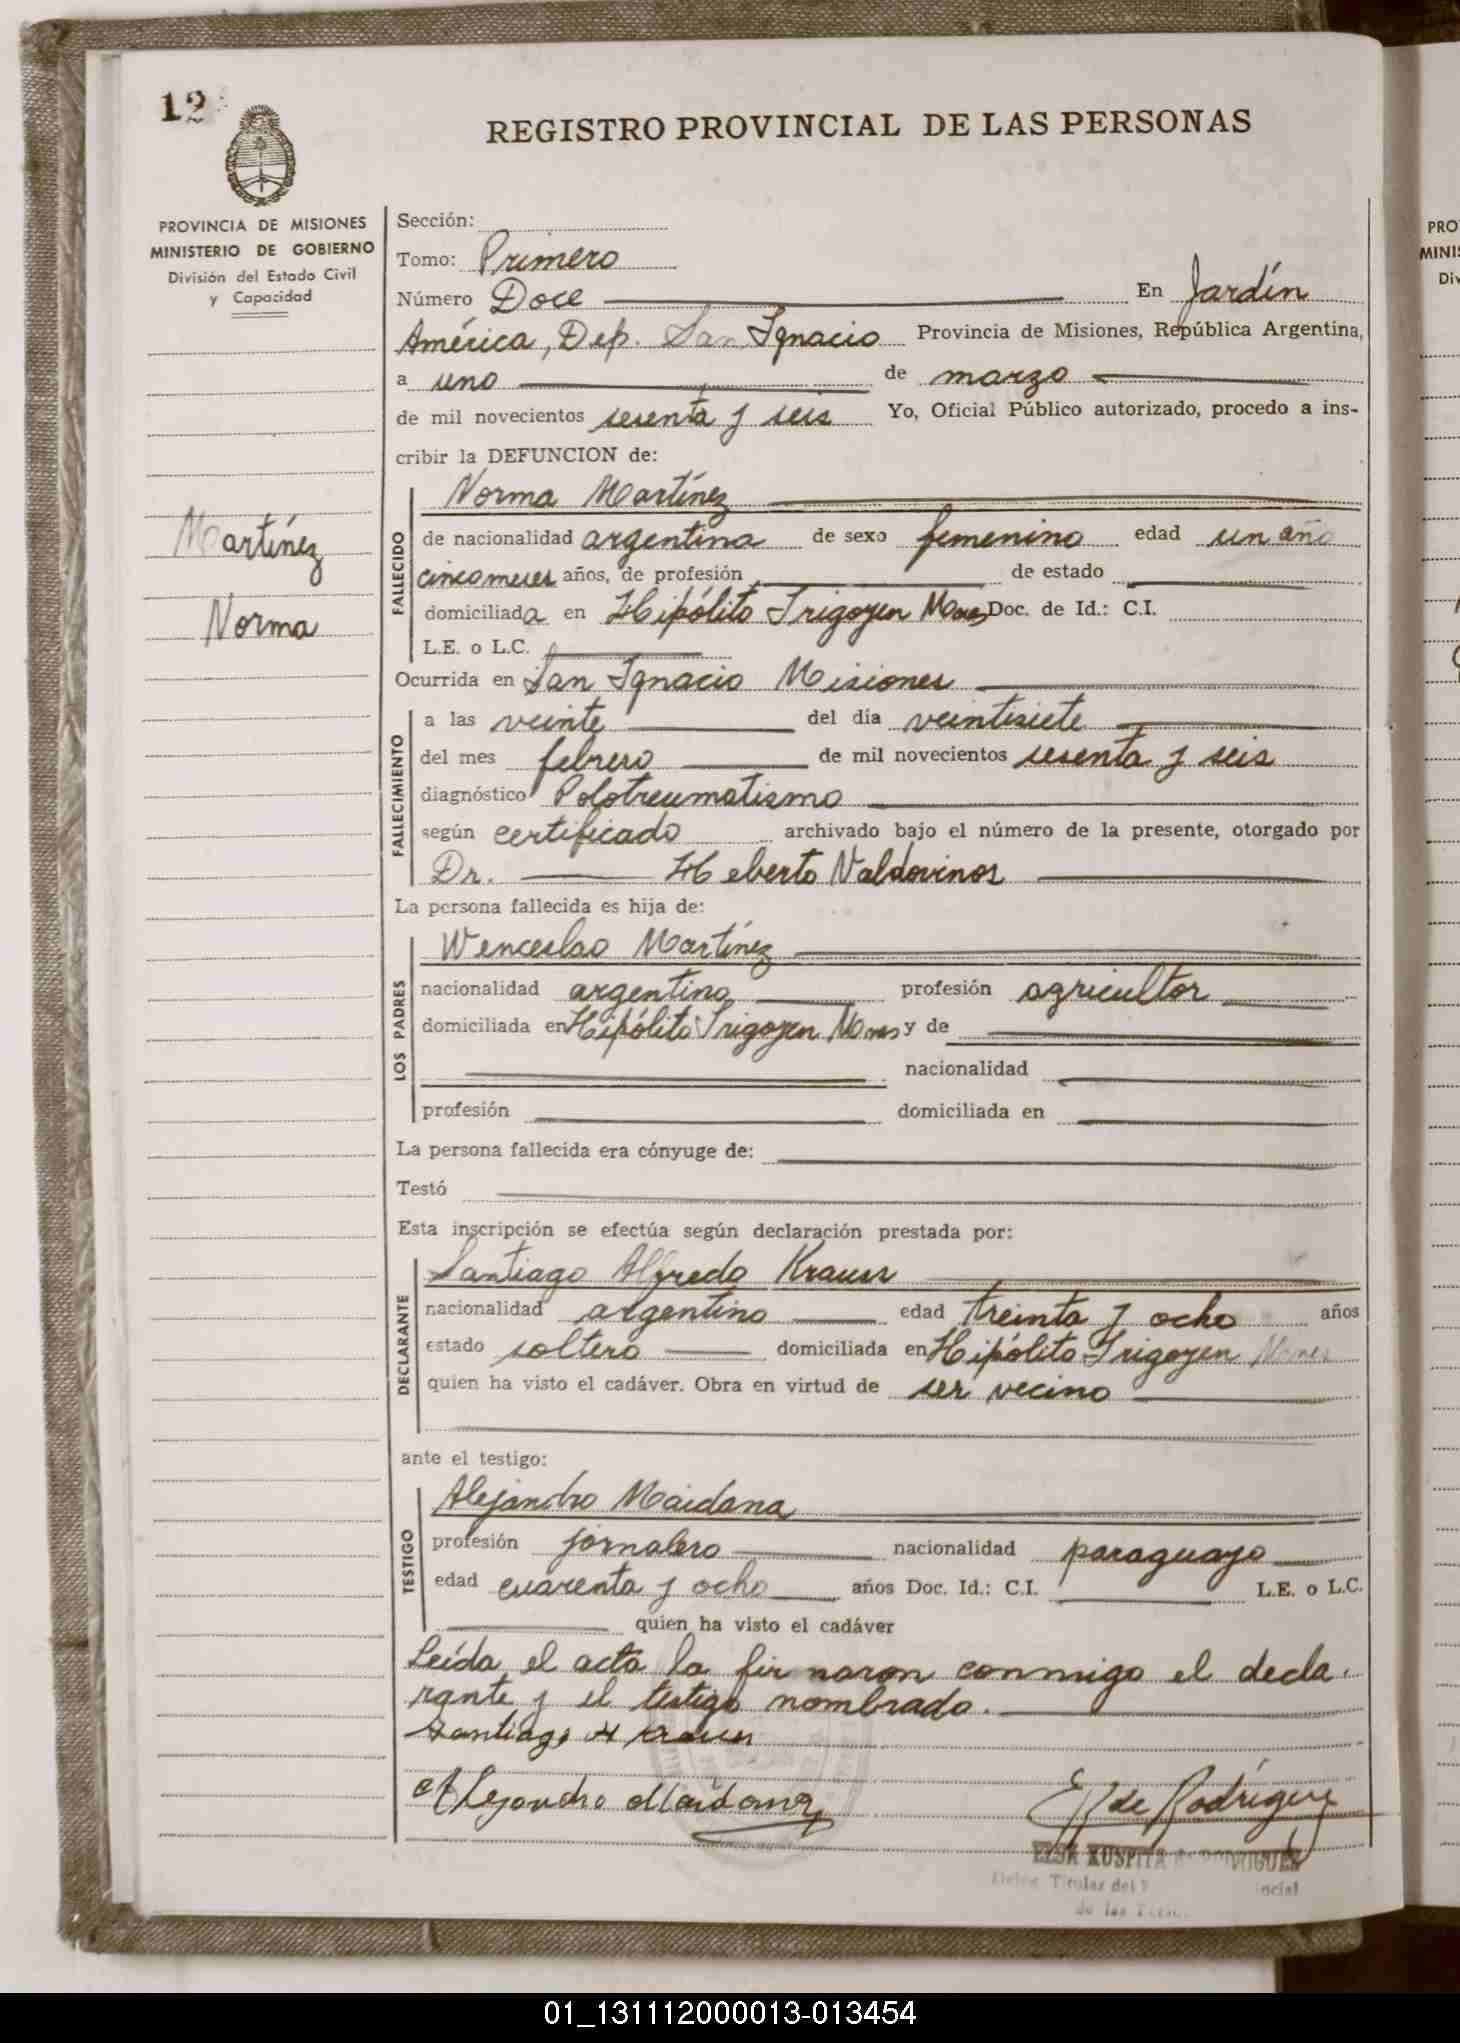 12
REGISTRO PROVINCIAL DE LAS PERSONAS
PROVINCIA DE MISIONES
MINISTERIO DE GOBIERNO
División del Estado Civil
y Capacidad
Martínez
Norma
Sección:
Tomo: Primero
Número Doce En Jardín
América, Dep. San Ignacio Provincia de Misiones, República Argentina,
a uno de marzo
de mil novecientos sesenta y seis Yo, Oficial Público autorizado, procedo a ins-
cribir la DEFUNCION de:
FALLECIDO
Norma Martínez
de nacionalidad argentina de sexo femenino edad un año
cinco meses años, de profesión de estado
domiciliada en Hipólito Irigoyen Mnes Doc. de Id.: C.I.
L.E. o L.C.
Ocurrida en San Ignacio Misiones
FALLECIMIENTO
a las veinte del día veintisiete
del mes febrero de mil novecientos sesenta y seis
diagnóstico Polotreumatismo
según certificado archivado bajo el número de la presente, otorgado por
Dr. Heberto Valdovinos
La persona fallecida es hija de:
LOS PADRES
Wenceslao Martínez
nacionalidad argentino profesión agricultor
domiciliada en Hipólito Irigoyen Mnes y de
nacionalidad
profesión domiciliada en
La persona fallecida era cónyuge de:
Testó
Esta inscripción se efectúa según declaración prestada por:
DECLARANTE
Santiago Alfredo Krauss
nacionalidad argentino edad treinta y ocho años
estado soltero domiciliada en Hipólito Irigoyen Mnes
quien ha visto el cadáver. Obra en virtud de ser vecino
ante el testigo:
TESTIGO
Alejandro Maidana
profesión jornalero nacionalidad paraguayo
edad cuarenta y ocho años Doc. Id.: C.I. L.E. o L.C.
quien ha visto el cadáver
Leída el acta la firmaron conmigo el decla-
rante y el testigo nombrado.
Santiago A Krauss
Alejandro Maidana
E K de Rodríguez
ELSA KUSPITA de RODRIGUEZ
Titular del
PRO
MINIS
Div
01_131112000013-013454